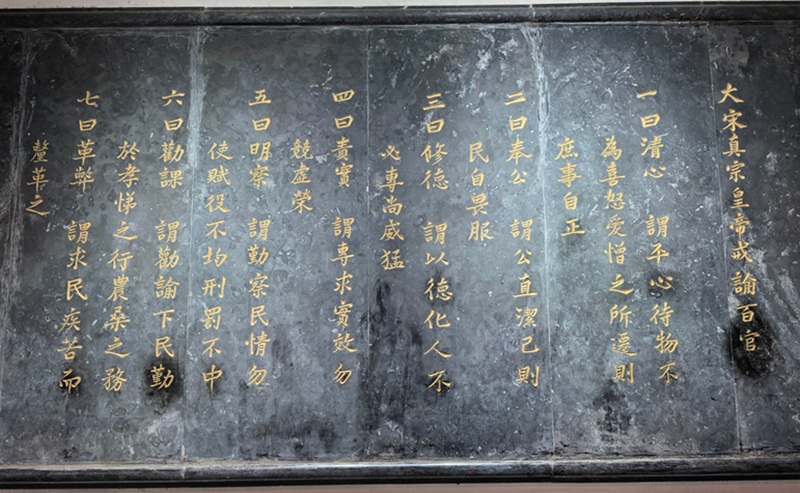 大宋真宗皇帝戒諭百官
一曰清心　謂平心待物不
為喜怒愛憎之所遷則
庶事自正
二曰奉公　謂公直潔己則
民自畏服
三曰修德　謂以德化人不
必專尚威猛
四曰責實　謂專求實效勿
競虛榮
五曰明察　謂勤察民情勿
使賦役不均刑罰不中
六曰勸課　謂勸諭下民勤
於孝悌之行農桑之務
七曰革弊　謂求民疾苦而
釐革之